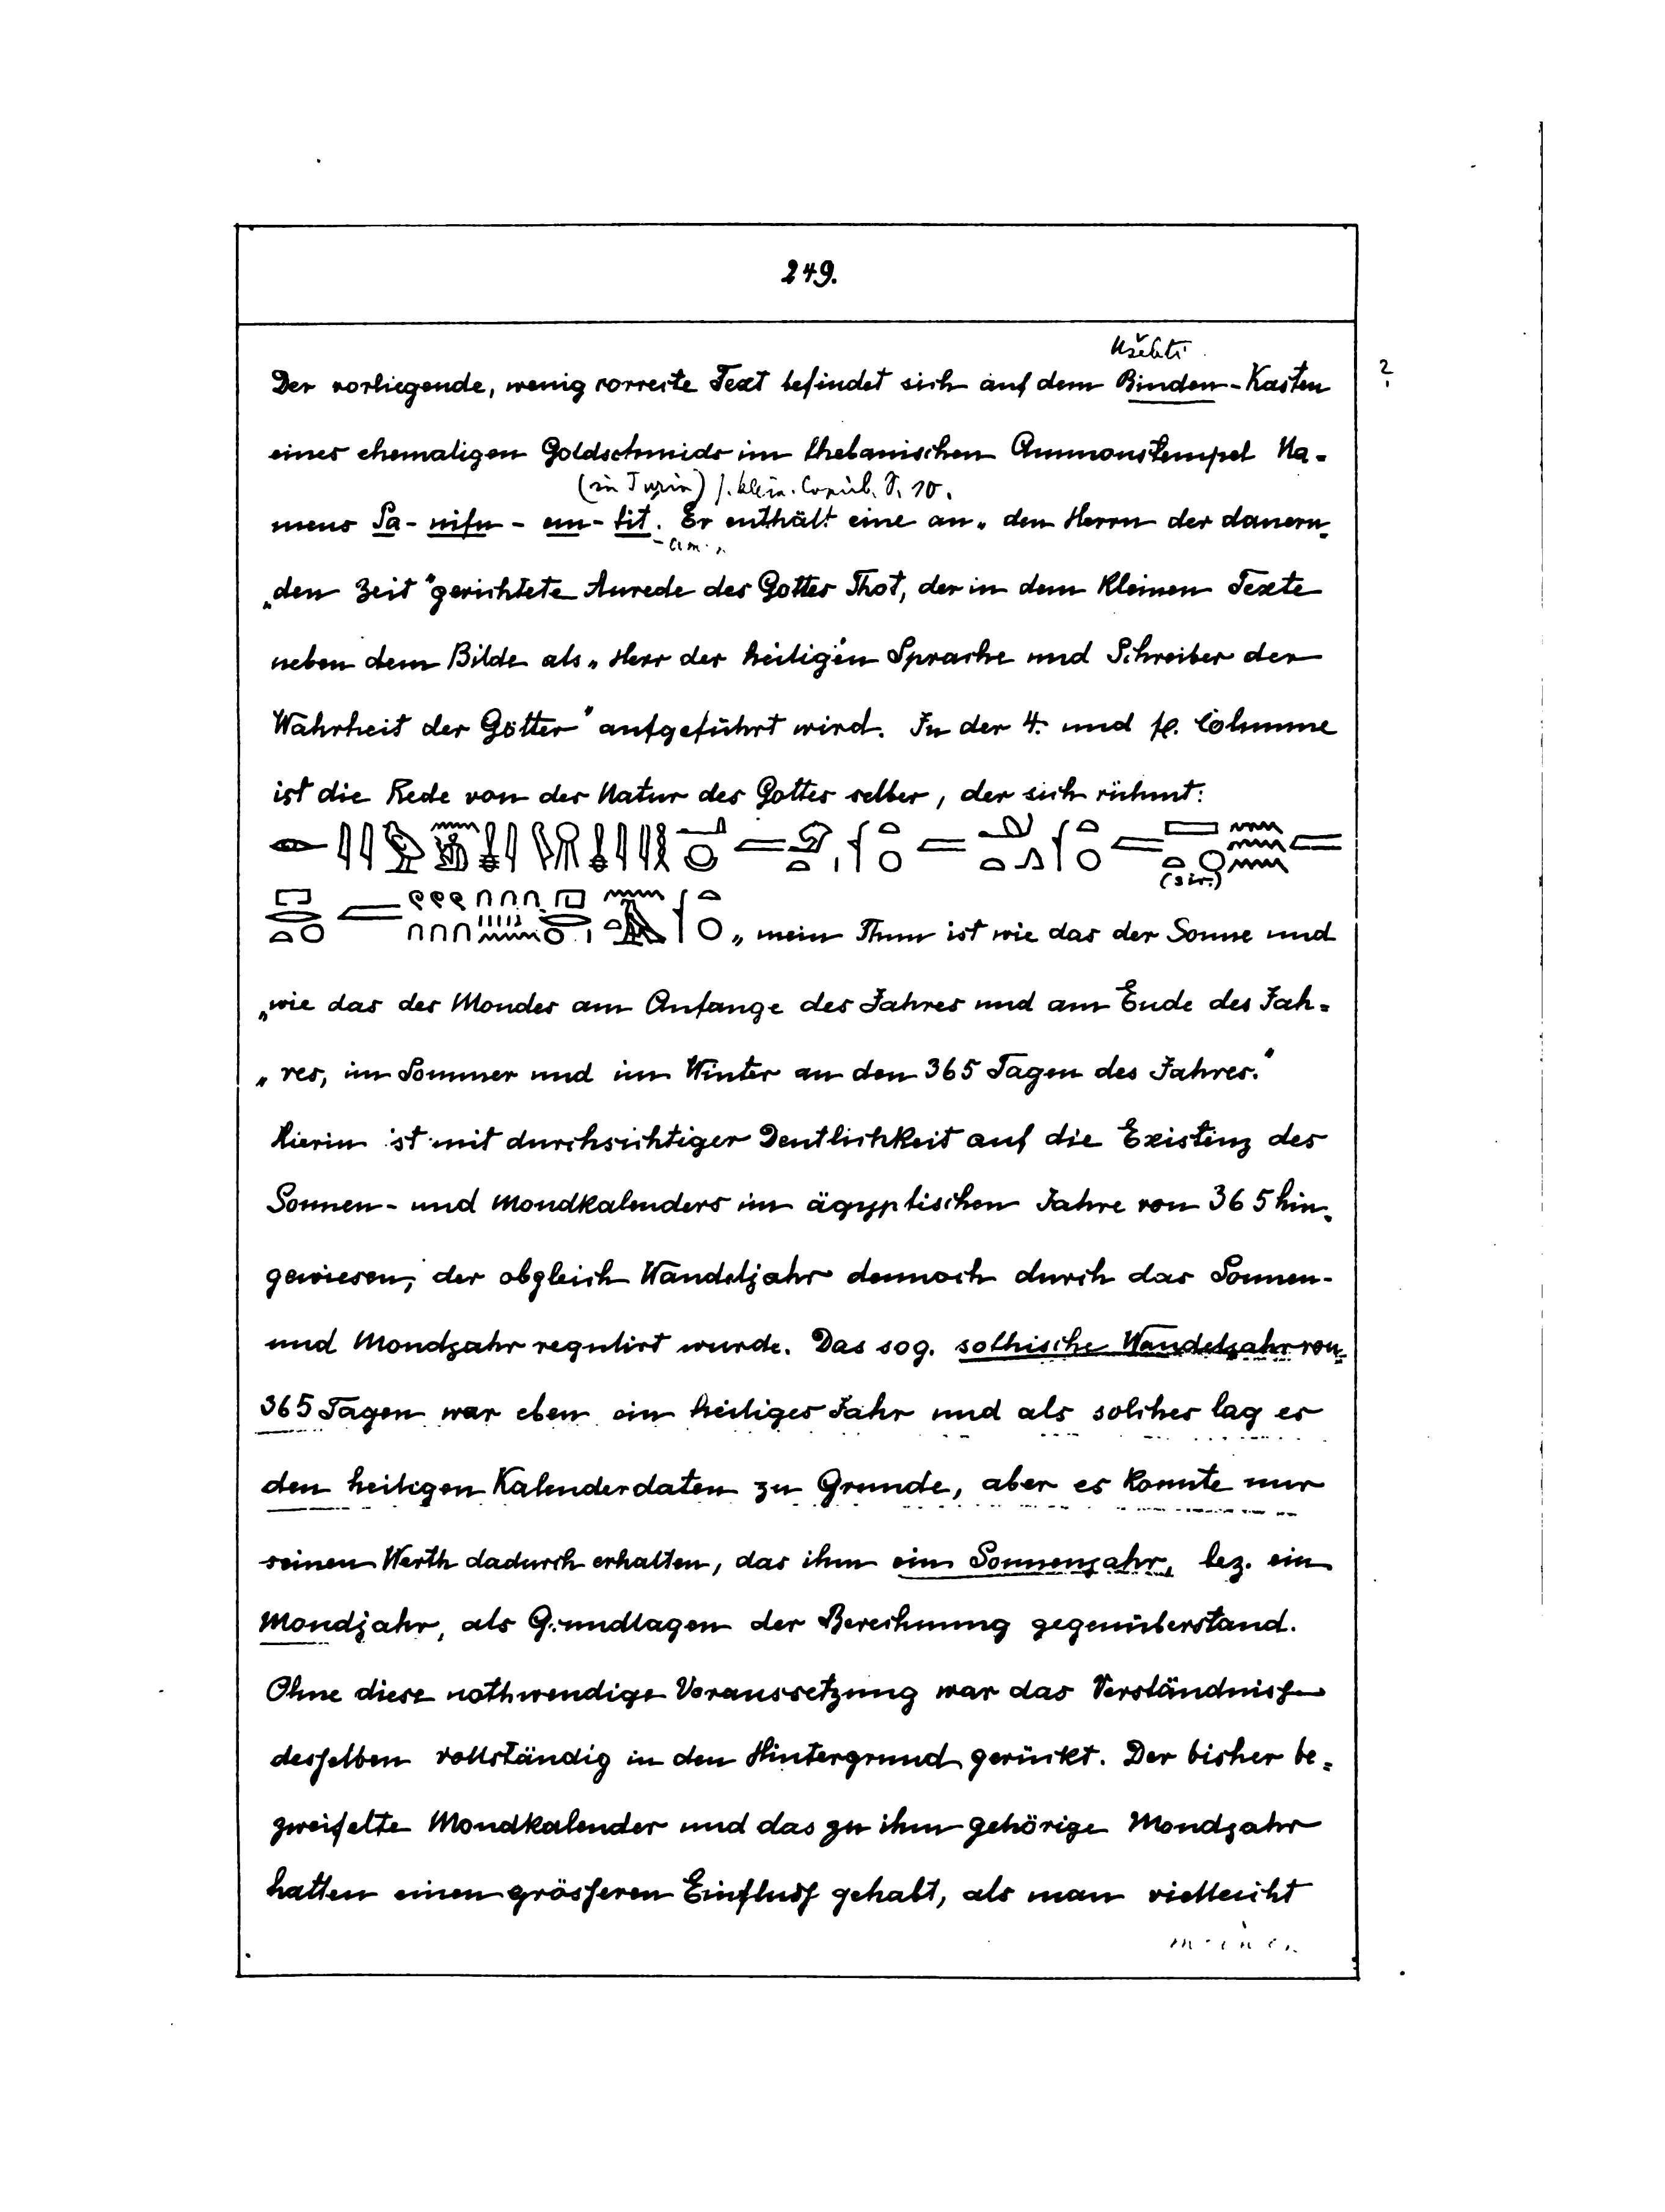 249.
Ušebti
Der vorliegende, wenig correcte Text befindet sich auf dem Binden-Kasten
?
eines ehemaligen Goldschmids im thebanischen Ammonstempel Na-
(in Turin) s. klein.
mens Pa-nifu-em-tit. Er enthält eine an „den Herrn der dauern-
„den Zeit" gerichtete Anrede des Gottes Thot, der in dem kleinen Texte
neben dem Bilde als „Herr der heiligen Sprache und Schreiber der
Wahrheit der Götter" aufgeführt wird. In der 4. und fg. Columne
ist die Rede von der Natur des Gottes selber, der sich rühmt:
(sic)
„mein Thun ist wie das der Sonne und
„wie das des Mondes am Anfange des Jahres und am Ende des Jah-
„res, im Sommer und im Winter an den 365 Tagen des Jahres."
Hierin ist mit durchsichtiger Deutlichkeit auf die Existenz des
Sonnen- und Mondkalenders im ägyptischen Jahre von 365 hin-
gewiesen, der obgleich Wandeljahr dennoch durch das Sonnen-
und Mondjahr regulirt wurde. Das sog. sothische Wandeljahr von
365 Tagen war eben ein heiliges Jahr und als solches lag es
den heiligen Kalenderdaten zu Grunde, aber es konnte nur
seinen Werth dadurch erhalten, das ihm ein Sonnenjahr, bez. ein
Mondjahr, als Grundlagen der Berechnung gegenüberstand.
Ohne diese nothwendige Voraussetzung war das Verständniss
desselben vollständig in den Hintergrund gerückt. Der bisher be-
zweifelte Mondkalender und das zu ihm gehörige Mondjahr
hatten einen grösseren Einfluss gehabt, als man vielleicht